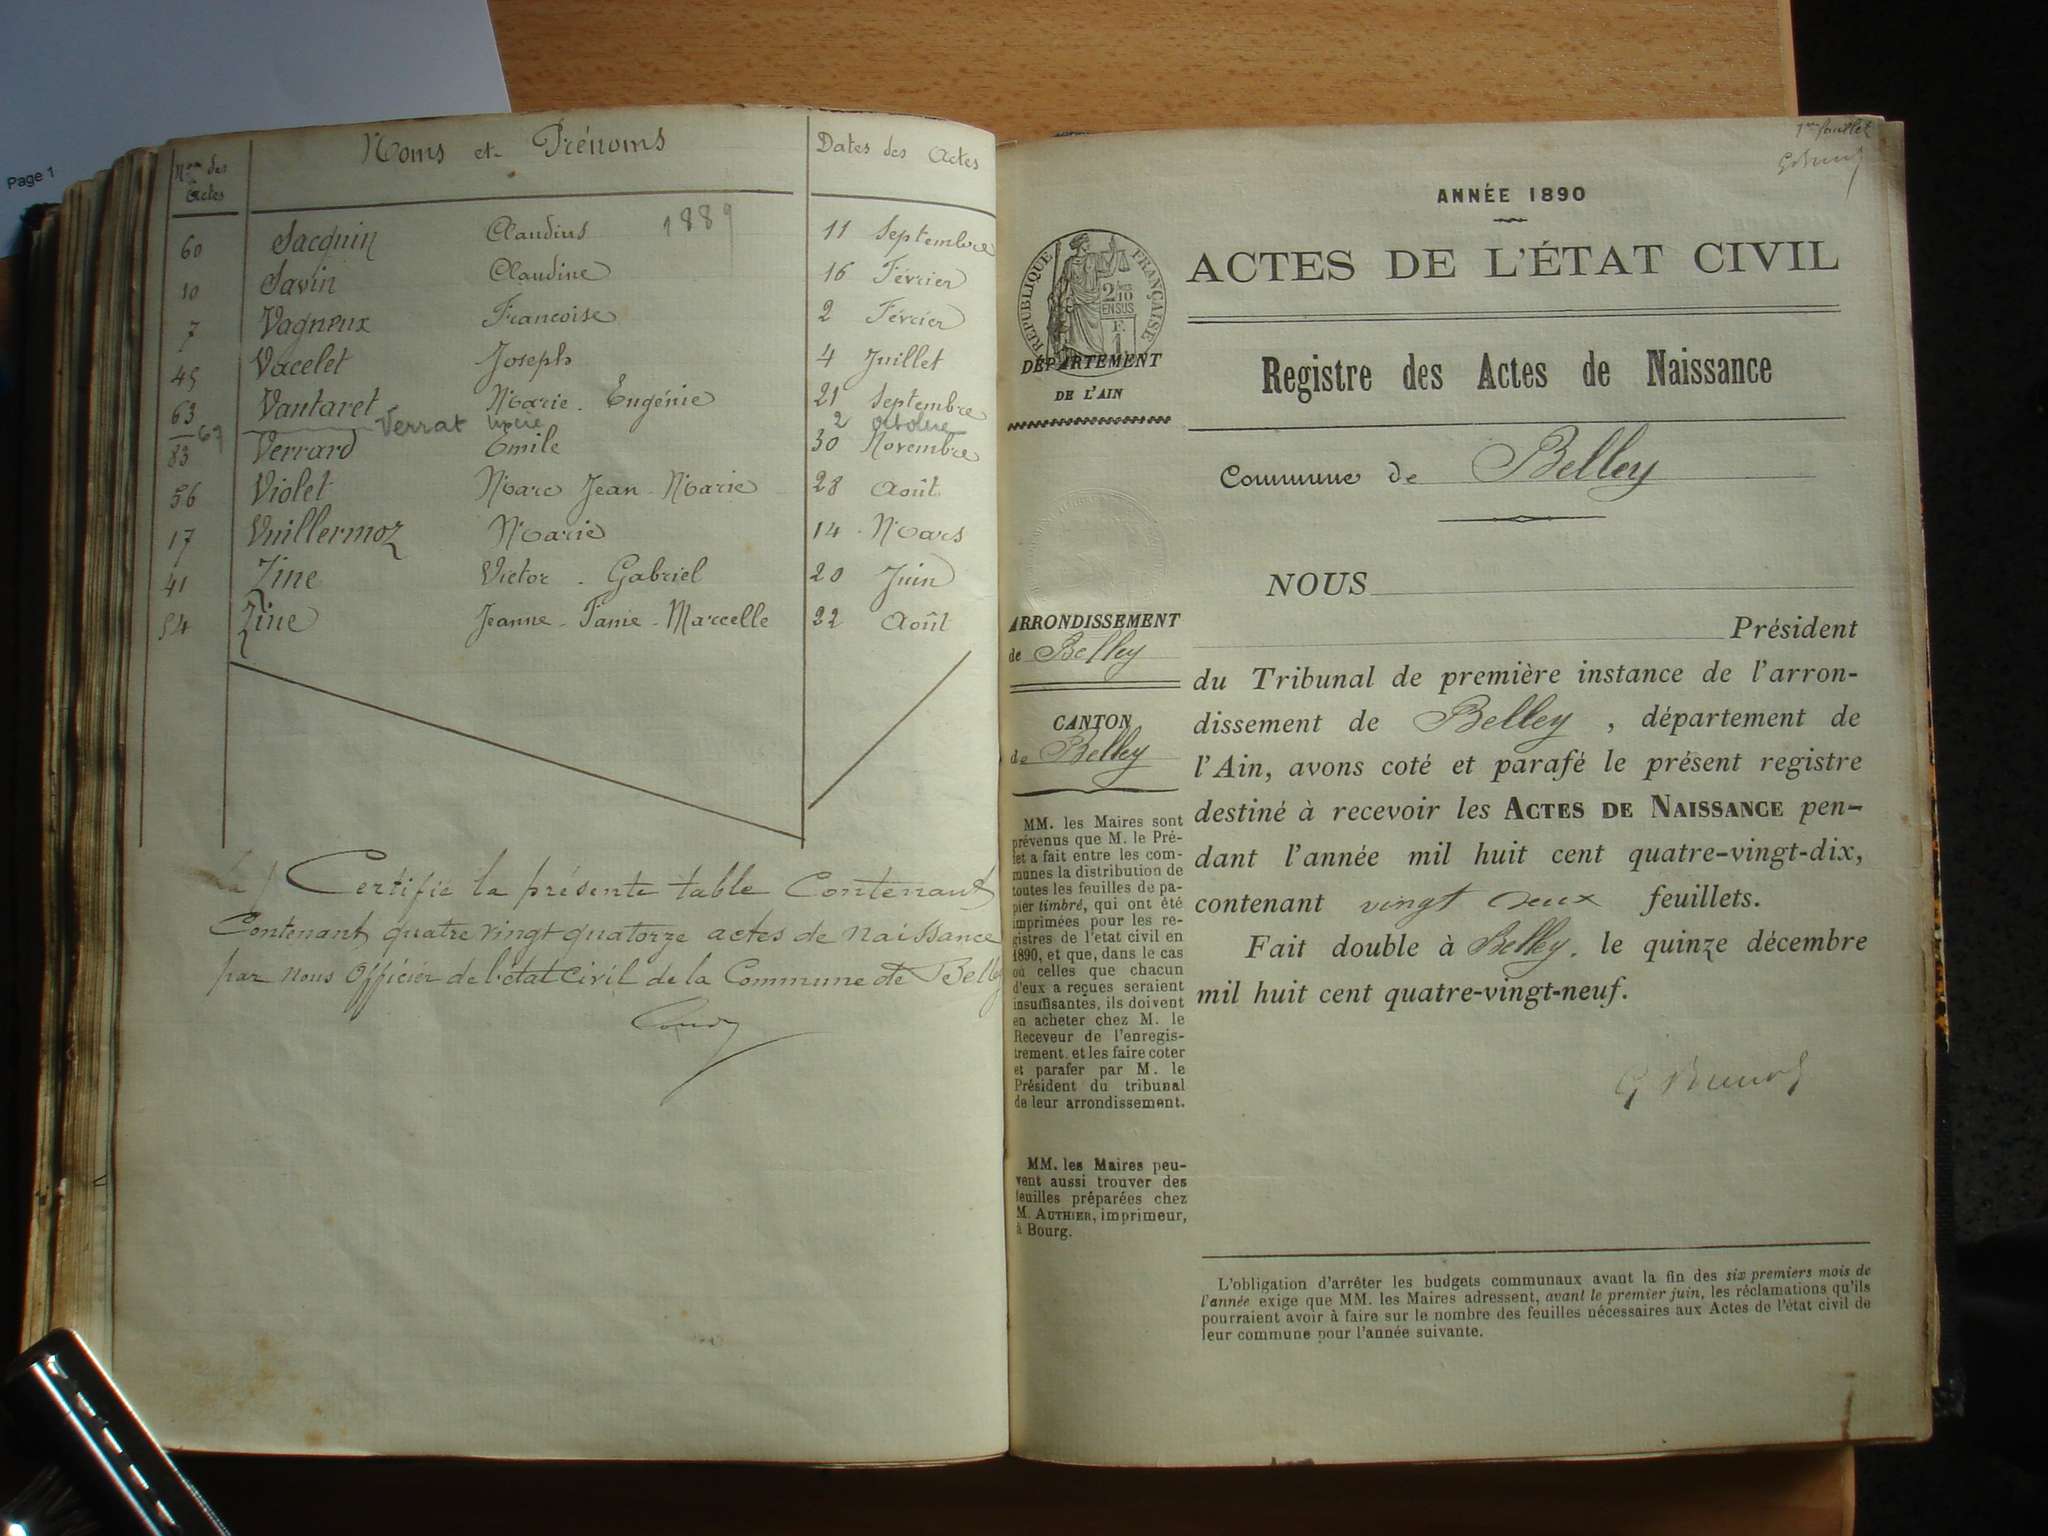 Page 1
Nos des Actes Noms et Prénoms Dates des Actes
1889
60 Jacquin Claudius 11 Septembre
10 Savin Claudine 16 Février
7 Vagneux Francoise 2 Février
45 Vacelet Joseph 4 Juillet
63 Vantaret Marie. Eugénie 21 Septembre
67 Verrat Lucie 2 octobre
83 Verrard Émile 30 Novembre
56 Violet Marc Jean-Marie 28 Août
17 Vuillermoz Marie 14 Mars
41 Zine Victor. Gabriel 20 Juin
54 Zine Jeanne-Fanie-Marcelle 22 Août
Certifié la présente table Contenant
Contenant quatre vingt quatorze actes de naissance
par nous Officier de l'état Civil de la Commune de Belley
1er feuillet
ANNÉE 1890
ACTES DE L'ÉTAT CIVIL
RÉPUBLIQUE FRANÇAISE
2/10 EN SUS
DÉPARTEMENT
DE L'AIN
Registre des Actes de Naissance
Commune de Belley
NOUS
Président
du Tribunal de première instance de l'arron-
dissement de Belley, département de
l'Ain, avons coté et parafé le présent registre
destiné à recevoir les ACTES DE NAISSANCE pen-
dant l'année mil huit cent quatre-vingt-dix,
contenant vingt deux feuillets.
Fait double à Belley, le quinze décembre
mil huit cent quatre-vingt-neuf.
ARRONDISSEMENT
de Belley
CANTON
de Belley
MM. les Maires sont
prévenus que M. le Pré-
fet a fait entre les com-
munes la distribution de
toutes les feuilles de pa-
pier timbré, qui ont été
imprimées pour les re-
gistres de l'etat civil en
1890, et que, dans le cas
où celles que chacun
d'eux a reçues seraient
insuffisantes, ils doivent
en acheter chez M. le
Receveur de l'enregis-
trement, et les faire coter
et parafer par M. le
Président du tribunal
de leur arrondissement.
MM. les Maires peu-
vent aussi trouver des
feuilles préparées chez
M. AUTHIER, imprimeur,
à Bourg.
L'obligation d'arrêter les budgets communaux avant la fin des six premiers mois de
l'année exige que MM. les Maires adressent, avant le premier juin, les réclamations qu'ils
pourraient avoir à faire sur le nombre des feuilles nécessaires aux Actes de l'état civil de
leur commune pour l'année suivante.